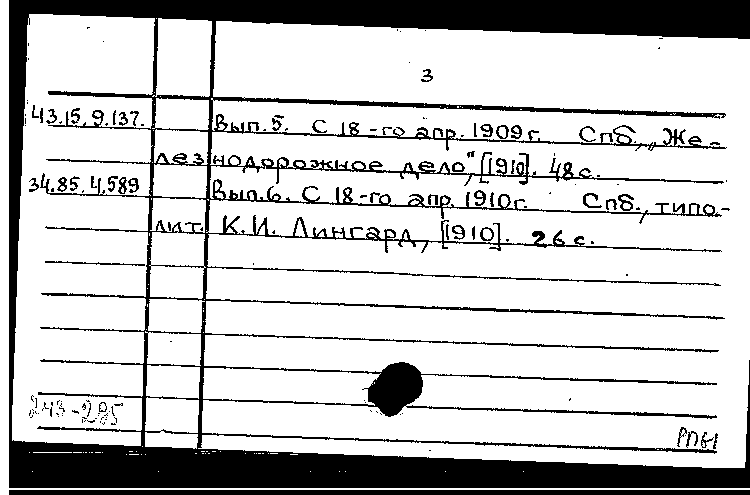 3
43.15.9.137. Вып. 5. С 18-го апр. 1909 г. Спб., „Же-
лезнодорожное дело", [1910]. 48 с.
34.85.4.589 Вып. 6. С 18-го апр. 1910 г. Спб., типо-
лит. К. И. Лингард, [1910]. 26 с.
243-285